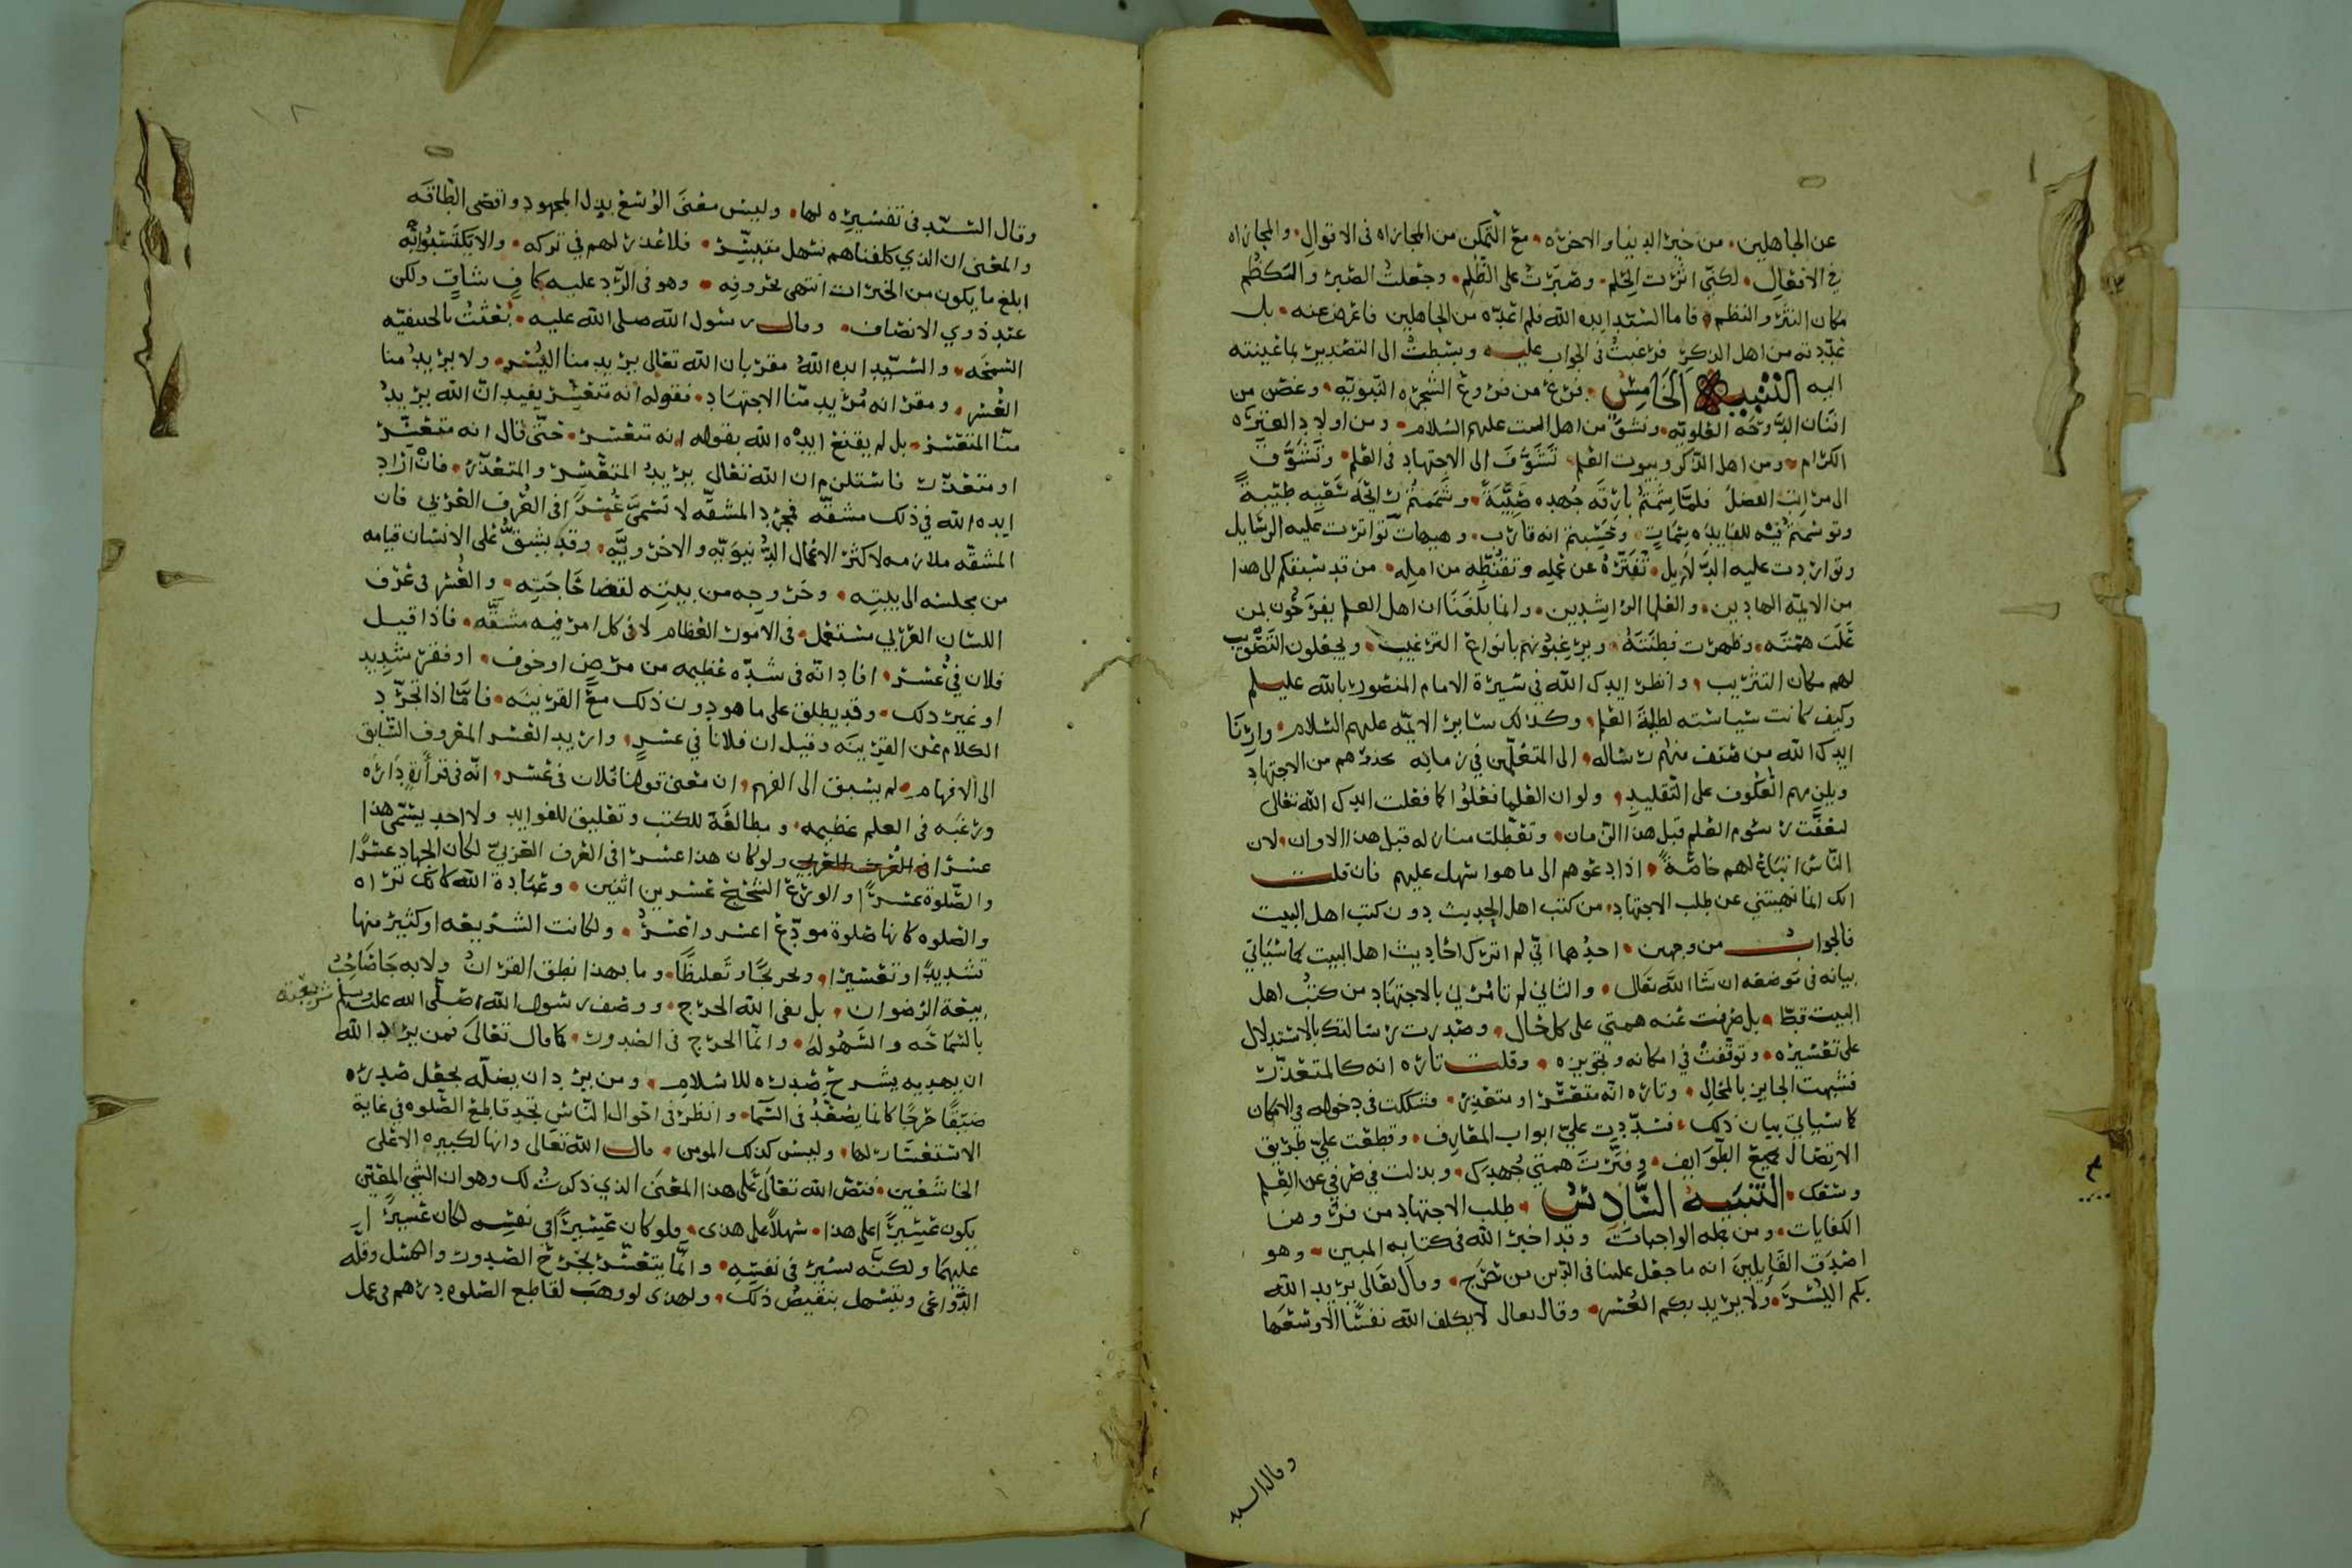 عن الجاهلين، من خير الدنيا والاخره، مع التمكن من المجازاه في الاقوال، والمجازاه
في الافعال، لكني اثرت الحلم، وصبرت على الظلم، وجعلت الصبر والكظم
مكان النثر والنظم، فاما السيد ايده الله فلم اعده من الجاهلين فاعرض عنه، بل
عددته من اهل الذكر فرغبت في الجواب عليه وبسطت الى التصدير بما عينته
اليه التنبيه الخامس، فرع من فروع الشجره النبويه، وغصن من
افنان الدوحه العلويه، ونشو من اهل البيت عليهم السلام، ومن اولاد العتره
الكرام، ومن اهل الذكر وبيوت العلم، تشوف الى الاجتهاد في العلم، وتشوف
الى مراتب الفضل فلما شمتم بارقه جهده صيبة، وشممتم رائحه سقيه طيبة
وتوسمتم فيه للفايده سمات، وحسبتم انه قارب، وهيهات تواترت عليه الرسايل
وتواردت عليه الدلايل، تفتره عن عمله وتقنطه من امله، من قد سبقكم الى هذا
من الايمه الهادين، والعلما الراشدين، وانما بلغنا ان اهل العلم يفرحون بمن
علت همته، وظهرت فطنته، ويرغبونهم بانواع الترغيب، ويجعلون التصويب
لهم مكان التثريب، وانظر ايدك الله في سيرة الامام المنصور بالله عليلم
وكيف كانت سياسته لطلبة العلم، وكذلك ساير الايمه عليهم السلام، وارنا
ايدك الله من صنف منهم رساله، الى المتعلمين في زمانه يحذرهم من الاجتهاد
ويلزمهم العكوف على التقليد، ولو ان العلما فعلوا كما فعلت ايدك الله تعالى
لعفت رسوم العلم قبل هذا الزمان، وتعطلت منازله قبل هذا الاوان، لان
الناس اتباع لهم خاصة، اذا دعوهم الى ما هو اسهل عليهم فان قلت
انك انما نهيتني عن طلب الاجتهاد، من كتب اهل الحديث دون كتب اهل البيت
فالجواب من وجهين، احدهما اني لم اترك احاديث اهل البيت كما سياتي
بيانه في موضعه ان شا الله تعالى، والثاني لم تامرني بالاجتهاد من كتب اهل
البيت قط، بل صرفت عنه همتي على كل حال، وصدرت رسالتك بالاستدلال
على تعسيره، وتوقفت في امكانه وتجويزه، وقلت تاره انه كالمتعذر
فشبهت الجايز بالمحال، وتاره انه متعسر او متعذر، فشككت في دخوله في الامكان
كما سياتي بيان ذلك، فسددت علي ابواب المعارف، وقطعت علي طريق
الاتصال بجميع الطوايف، وفترت همتي جهدك، وبذلت في صرفي عن العلم
وسعك، التنبيه السادس، طلب الاجتهاد من فروض
الكفايات، ومن جمله الواجبات وقد اخبر الله في كتابه المبين، وهو
اصدق القايلين انه ما جعل علينا في الدين من حرج، وقال تعالى يريد الله
بكم اليسر، ولا يريد بكم العسر، وقال تعالى لا يكلف الله نفسا الا وسعها
وقال السيد
وقال السيد في تفسيره لها، وليس معنى الوسع بذل المجهود واقصى الطاقه
والمعنى ان الذي كلفناهم سهل متيسر، فلا عذر لهم في تركه، والا يكتسبوا به
ابلغ ما يكون من الخيرات انتهى بحروفه، وهو في الرد عليه كاف شاف ولكن
عند ذوي الانصاف، وقال رسول الله صلى الله عليه، بعثت بالحنيفيه
السمحه، والسيد ايده الله مقر بان الله تعالى يريد منا اليسر، ولا يريد منا
العسر، ومقر انه يريد منا الاجتهاد، فقوله انه متعسر يفيد ان الله يريد
منا المتعسر، بل لم يقنع ايده الله بقوله انه متعسر، حتى قال انه متعسر
او متعذر فاستلزم ان الله تعالى يريد المتعسر والمتعذر، فان اراد
ايده الله في ذلك مشقه فمجرد المشقه لا تسمى عسرا في العرف العربي فان
المشقه ملازمه لاكثر الاعمال الدنيويه والاخرويه، وقد يشق على الانسان قيامه
من مجلسه الى بيته، وخروجه من بيته لقضا حاجته، والعسر في عرف
اللسان العربي مستعمل، في الامور العظام لا في كل امر فيه مشقه، فاذا قيل
فلان في عسر، افاد انه في شده عظيمه من مرض او خوف، او فقر شديد
او غير ذلك، وقد يطلق على ما هو دون ذلك مع القرينه، فاما اذا تجرد
الكلام عن القرينه وقيل ان فلانا في عسر، واريد العسر المعروف السابق
الى الافهام، لم يسبق الى الفهم، ان معنى قولنا فلان في عسر، انه في قرأة دائره
ورغبه في العلم عظيمه، ومطالعة للكتب وتعليق للفوايد ولا احد يسمي هذا
عسرا في العرف العربي ولو كان هذا عسرا في العرف العربي لكان الجهاد عسرا
والصلوة عسرا والورع الشحيح عسرين اثنين، وعبادة الله كانك تراه
والصلوه كانها صلوة مودع اعسر واعسر، ولكانت الشريعه او كثير منها
تشديدا وتعسيرا، وتحريجا وتغليظا، وما بهذا نطق القران ولا به جا صاحب
بيعة الرضوان، بل نفى الله الحرج، ووصف رسول الله صلى الله عليه وسلم شريعته
بالسماحه والسهوله، وانما الحرج في الصدور، كما قال تعالى فمن يرد الله
ان يهديه يشرح صدره للاسلام، ومن يرد ان يضله يجعل صدره
ضيقا حرجا كانما يصعد في السما، وانظر في احوال الناس تجد قاطع الصلوه في غاية
الاستعسار لها، وليس كذلك المومن، قال الله تعالى وانها لكبيره الا على
الخاشعين، فنص الله تعالى على هذا المعنى الذي ذكرت لك وهو ان الشي المعين
يكون عسيرا على هذا، سهلا على هذى، ولو كان عسيرا في نفسه لكان عسيرا
عليهما ولكنه يسير في نفسه، وانما يتعسر بحرج الصدور والكسل وقله
الدواعي ويتسهل بنقيض ذلك، ولهذى لو وهب لقاطع الصلوه درهم في عمل